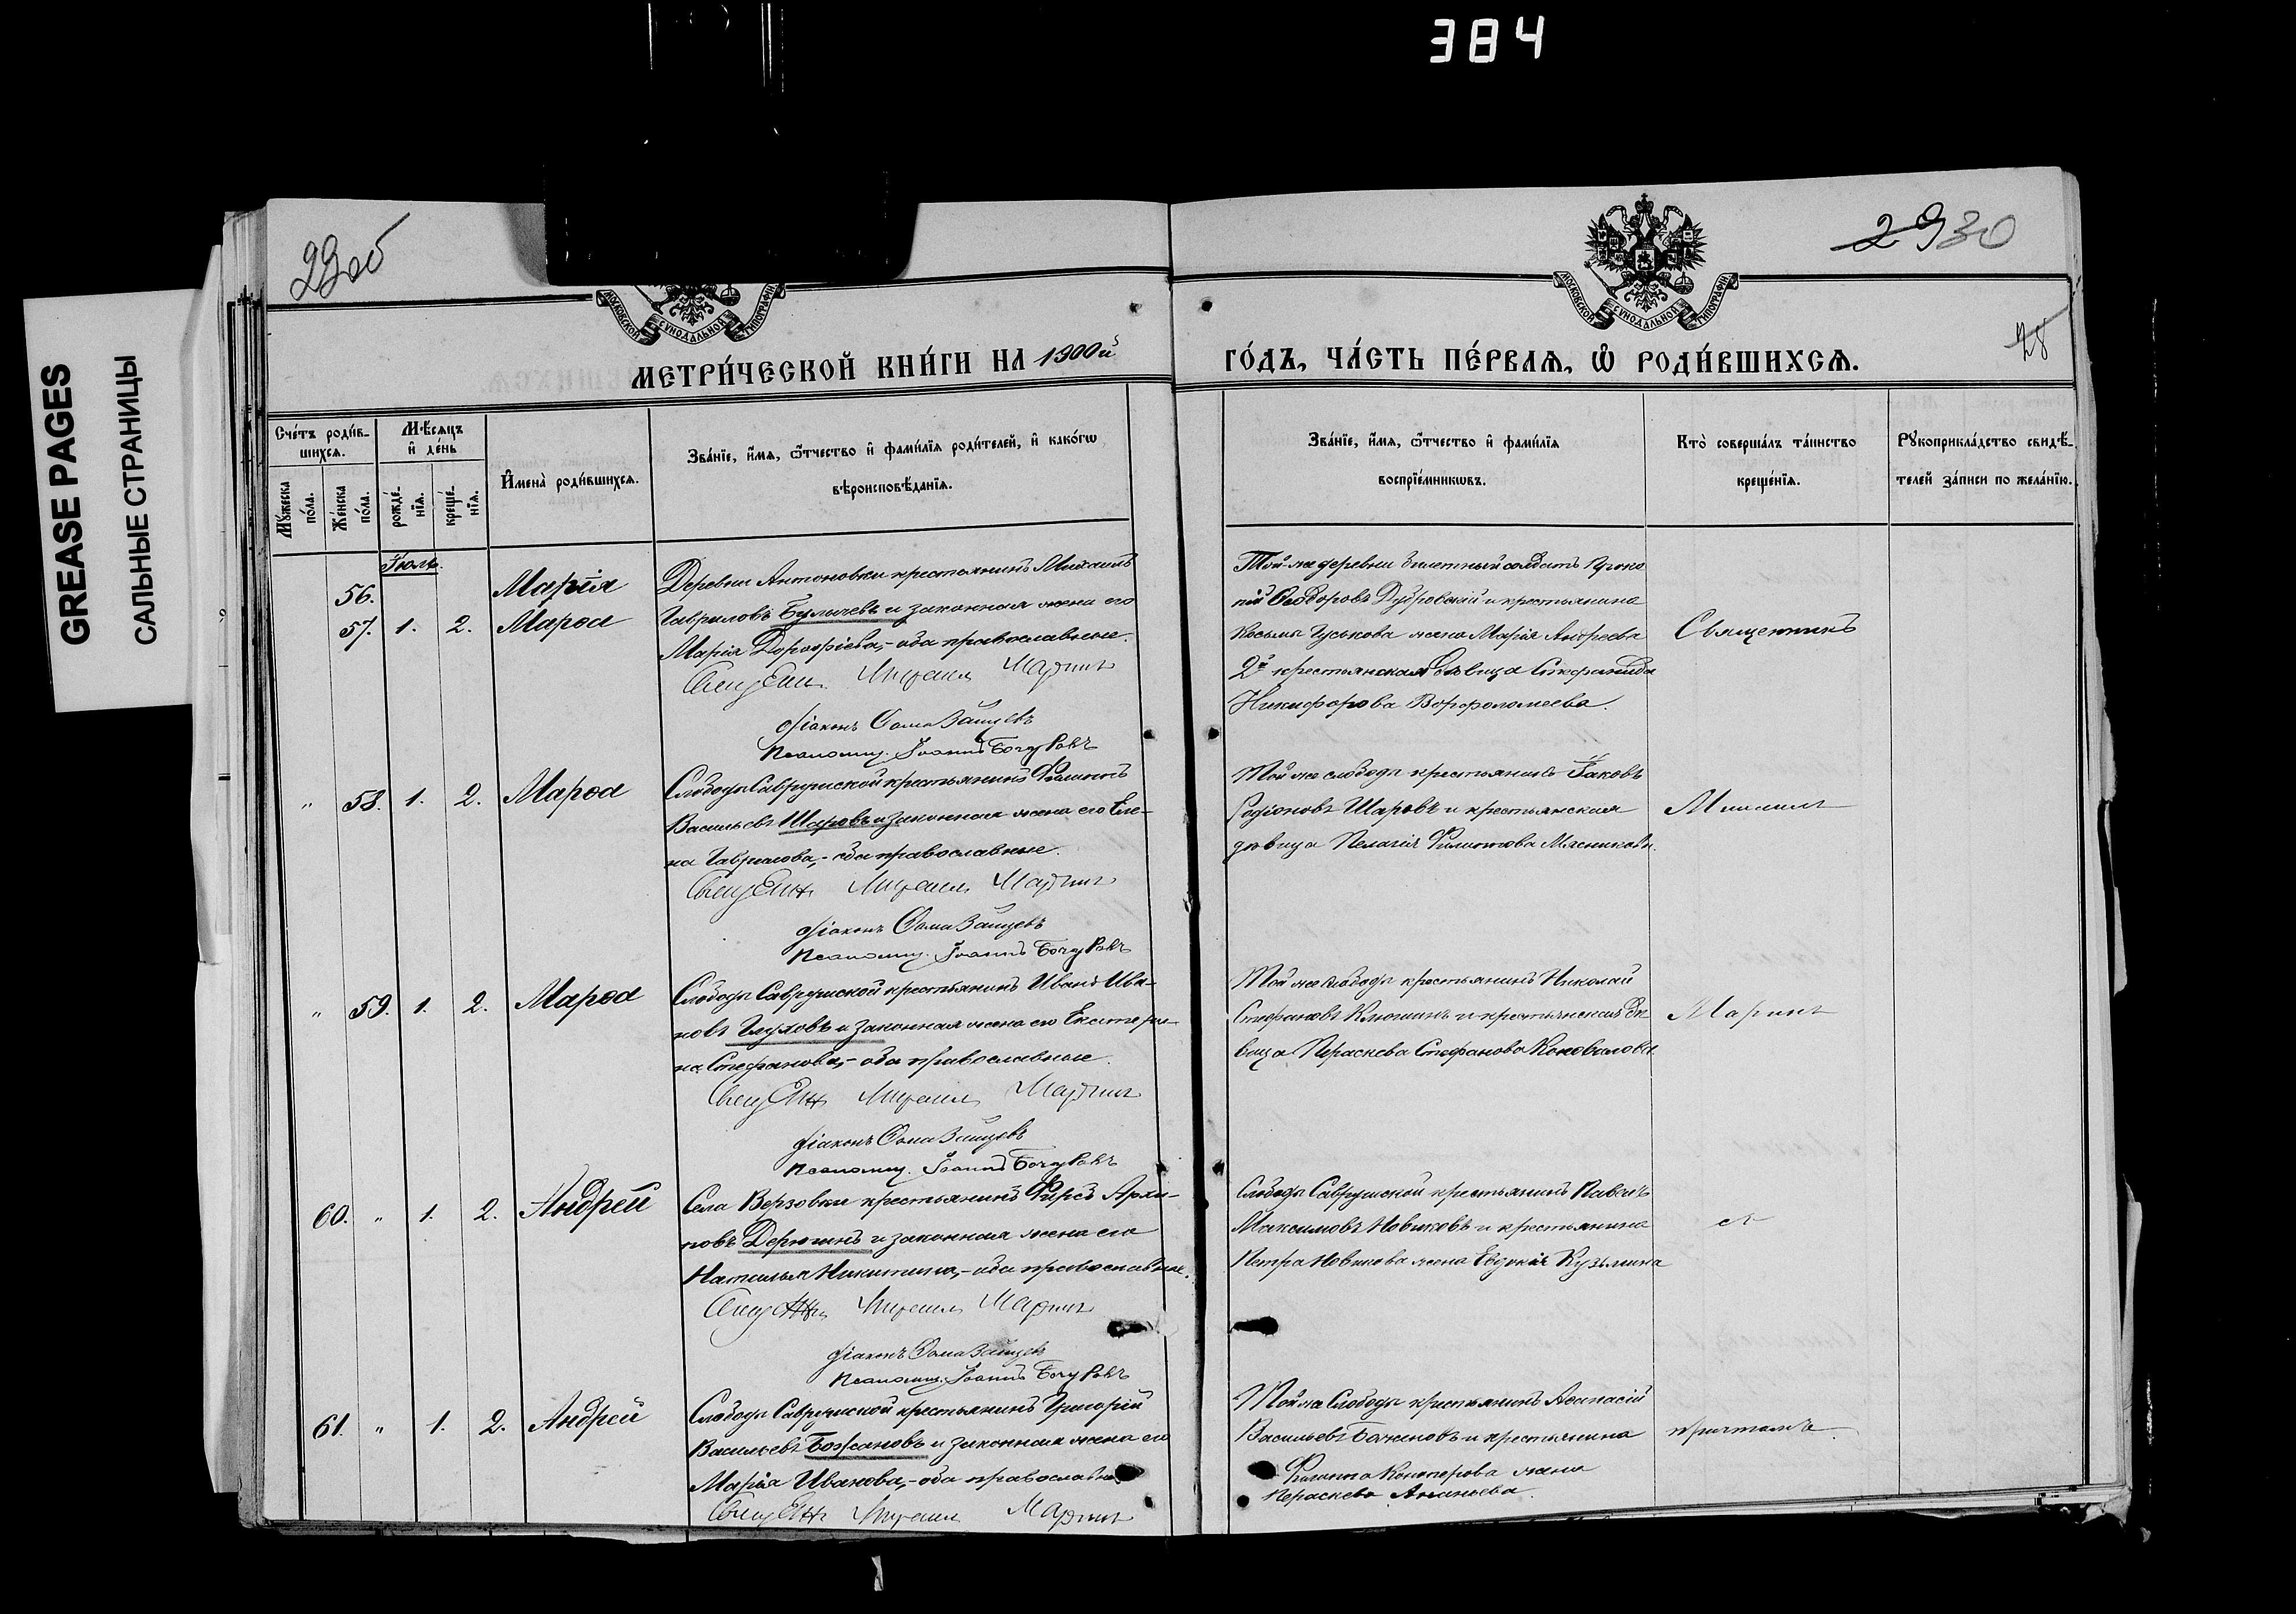 384
GREASE PAGES
САЛЬНЫЕ СТРАНИЦЫ
29об
29 30
28
МОСКОВСКОЙ СѴНОДАЛЬНОЙ ТИПОГРАФІИ
МОСКОВСКОЙ СѴНОДАЛЬНОЙ ТИПОГРАФІИ
МЕТРИ́ЧЕСКОЙ КНИ́ГИ НА 1900й
ГО́ДЪ, ЧА́СТЬ ПЕ́РВАѦ, Ѡ҆ РОДИ́ВШИХСѦ.
Сче́тъ роди́в-
шихсѧ.
Мѣ́сѧцъ
и҆ де́нь
Мꙋ́жеска
по́ла.
Же́нска
по́ла.
рожде́-
нїѧ.
креще́-
нїѧ.
И҆мена̀ роди́вшихсѧ.
Зва́нїе, и҆́мѧ, ѻ҆́тчество и҆ фами́лїѧ роди́телей, и҆ како́гѡ
вѣроисповѣ́данїѧ.
Зва́нїе, и҆́мѧ, ѻ҆́тчество и҆ фами́лїѧ
воспрїе́мникѡвъ.
Кто̀ соверша́лъ та́инство
креще́нїѧ.
Рꙋкоприкла́дство свидѣ́-
телей за́писи по жела́нїю.
Іюль.
56. Марія
57. 1. 2. Марѳа
Деревни Антоновки крестьянинъ Михаилъ
Гавриловъ Булычевъ и законная жена его
Марія Дорофіева,- оба православные.
Священ. Михаил Марин
діаконъ Ѳома Зайцевъ
Псаломщ. Іоаннъ Бочкаревъ
Той-же деревни билетный солдатъ Проко
пій Ѳеодоровъ Дубровскій и крестьянина
Косьмы Гуськова жена Марія Андреева
2й крестьянская дѣвица Стефанида
Никифорова Ворфоломеева.
Священникъ
" 58. 1. 2. Марѳа
Слободы Саврушской крестьянинъ Филиппъ
Васильевъ Шаровъ и законная жена его Еле-
на Гаврилова,- оба православные.
Священ Михаил Марин
діаконъ Ѳома Зайцевъ
Псаломщ. Іоаннъ
Той же слободы крестьянинъ Іаковъ
Родіоновъ Шаровъ и крестьянская
дѣвица Пелагія Филиппова Мясникова.
Михаилъ
" 59. 1. 2. Марѳа
Слободы Саврушской крестьянинъ Иванъ Ива-
новъ Глуховъ и законная жена его Екатери-
на Стефанова,- оба православные.
Священ Михаил Марин
діаконъ Ѳома Зайцевъ
Псаломщ. Іоаннъ
Той же слободы крестьянинъ Николай
Стефановъ Клюшинъ и крестьянская дѣ
вица Параскева Стефанова Коновалова.
Маринъ
60. " 1. 2. Андрей
Села Верзовки крестьянинъ Фирсъ Архи-
повъ Дерюгинъ и законная жена его
Наталья Никитина,- оба православные.
Священ Михаил Марин
діаконъ Ѳома Зайцевъ
Псаломщ. Іоаннъ
Слободы Саврушской крестьянинъ Павелъ
Максимовъ Новиковъ и крестьянина
Петра Новикова жена Евдокія Кузьмина
съ
61. " 1. 2. Андрей
Слободы Саврушской крестьянинъ Григорій
Васильевъ Божановъ и законная жена его
Марія Иванова,- оба православные
Священ Михаил Марин
Той же Слободы крестьянинъ Аѳанасій
Васильевъ Божановъ и крестьянина
Филиппа жена
Параскева Ананьева.
причтомъ.